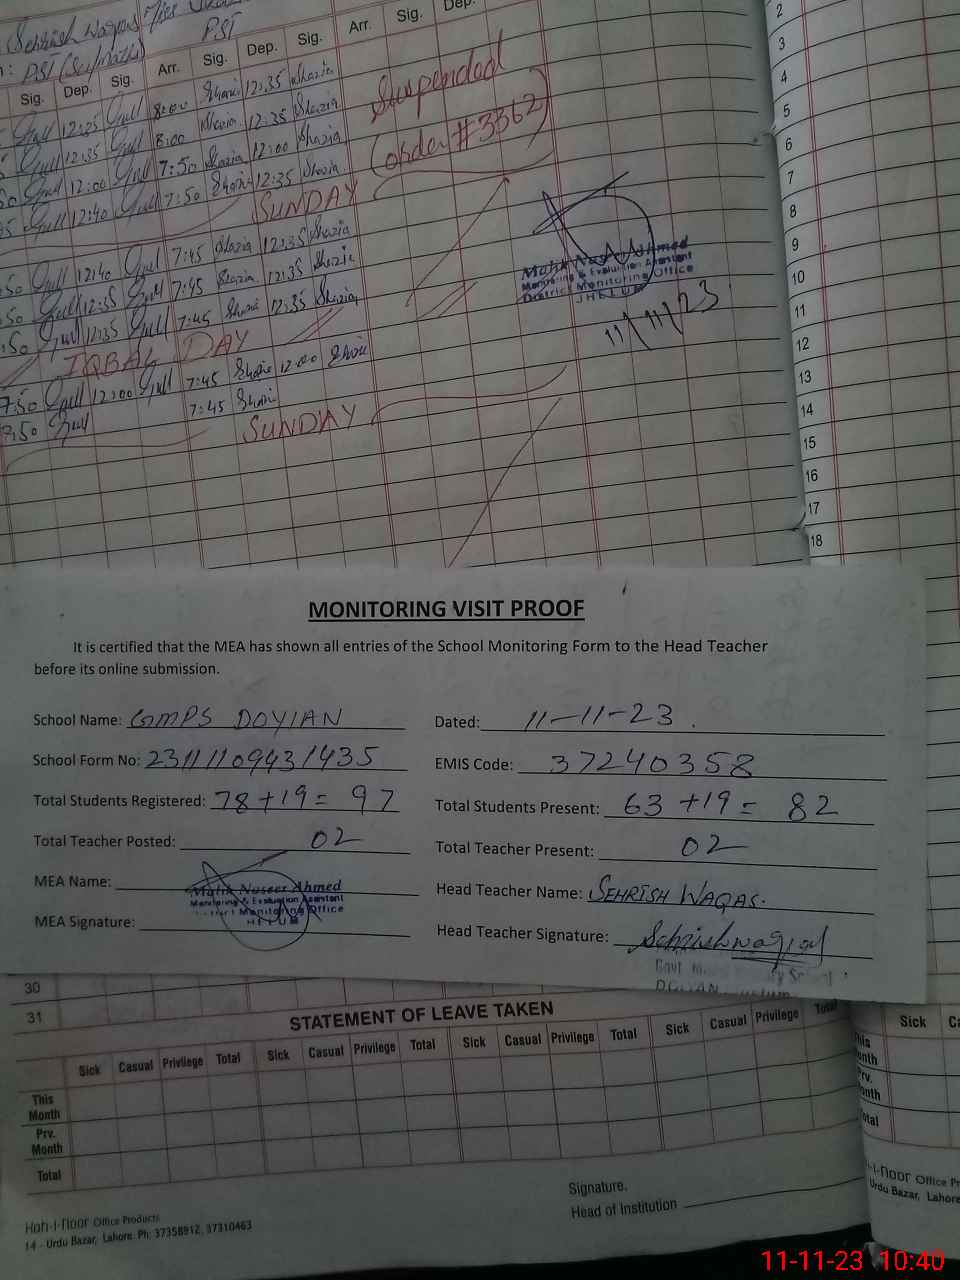 Sehrish Waqas Miss
: PST (Sci/Maths) PST
Sig. Dep. Sig. Arr. Sig. Dep. Sig. Arr. Sig. Dep.
Gull 12:35 Gull 8:00 Shazia 12:35 Shazia
Gull 12:35 Gull 8:00 Shazia 12:35 Shazia
Gull 12:00 Gull 7:50 Shazia 12:00 Shazia
Gull 12:40 Gull 7:50 Shazia 12:35 Shazia
Suspended
(order # 3362)
SUNDAY
Gull 12:40 Gull 7:45 Shazia 12:35 Shazia
:50 Gull 12:35 Gull 7:45 Shazia 12:35 Shazia
:50 Gull 12:35 Gull 7:45 Shazia 12:35 Shazia
IQBAL DAY
7:50 Gull 12:00 Gull 7:45 Shazia 12:00 Shazia
7:50 Gull 7:45 Shazia
SUNDAY
Malik Naseer Ahmed
Monitoring & Evaluation Assistant
District Monitoring Office
JHELUM
11/11/23
2
3
4
5
6
7
8
9
10
11
12
13
14
15
16
17
18
MONITORING VISIT PROOF
It is certified that the MEA has shown all entries of the School Monitoring Form to the Head Teacher
before its online submission.
School Name: GMPS DOYIAN Dated: 11-11-23
School Form No: 23111109431435 EMIS Code: 37240358
Total Students Registered: 78+19= 97 Total Students Present: 63+19= 82
Total Teacher Posted: 02 Total Teacher Present: 02
MEA Name: Malik Naseer Ahmed
Monitoring & Evaluation Assistant
District Monitoring Office
JHELUM
Head Teacher Name: SEHRISH WAQAS.
MEA Signature: Head Teacher Signature: Sehrishwaqas
Govt School
30
31
STATEMENT OF LEAVE TAKEN
Sick Casual Privilege Total Sick Casual Privilege Total Sick Casual Privilege Total Sick Casual Privilege Total Sick
This Month
Prv. Month
Total
Signature.
Head of Institution
Koh-I-Noor Office Products
14 - Urdu Bazar, Lahore. Ph: 37358912, 37310463
Office
Urdu Bazar, Lahore
11-11-23 10:40